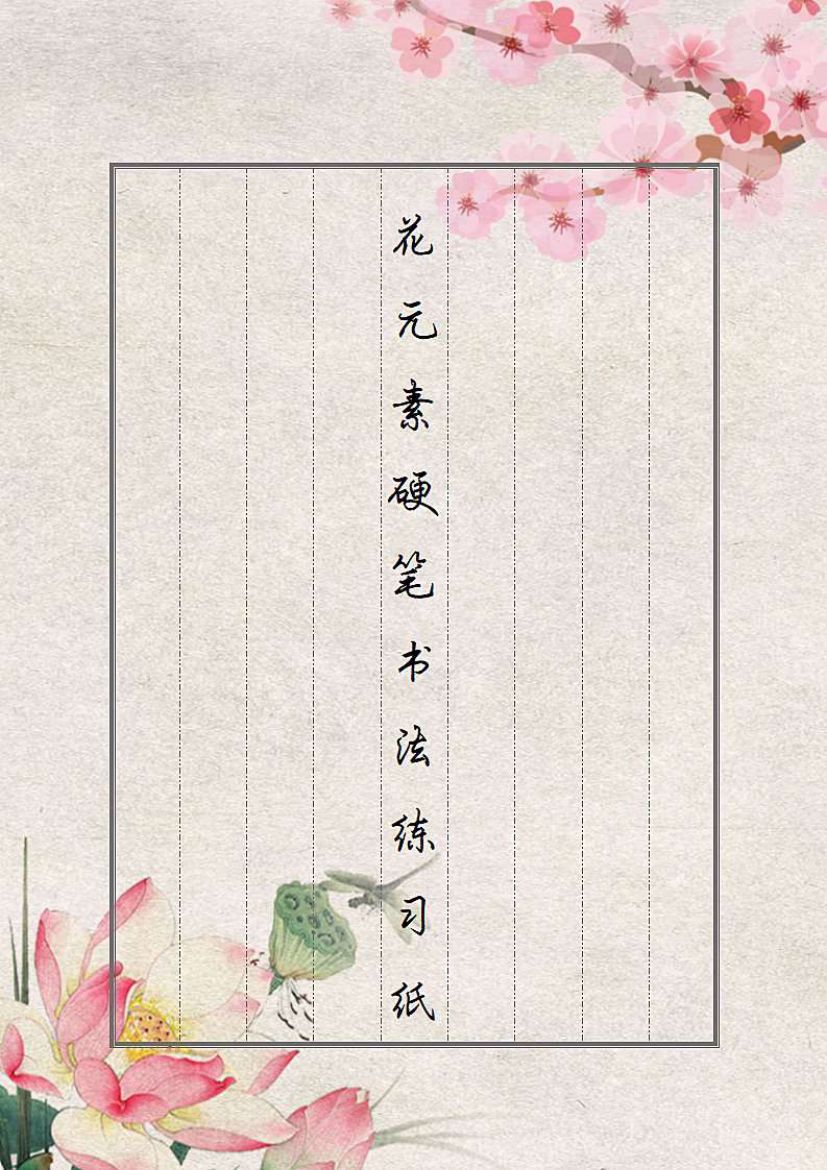 花元素硬笔书法练习纸